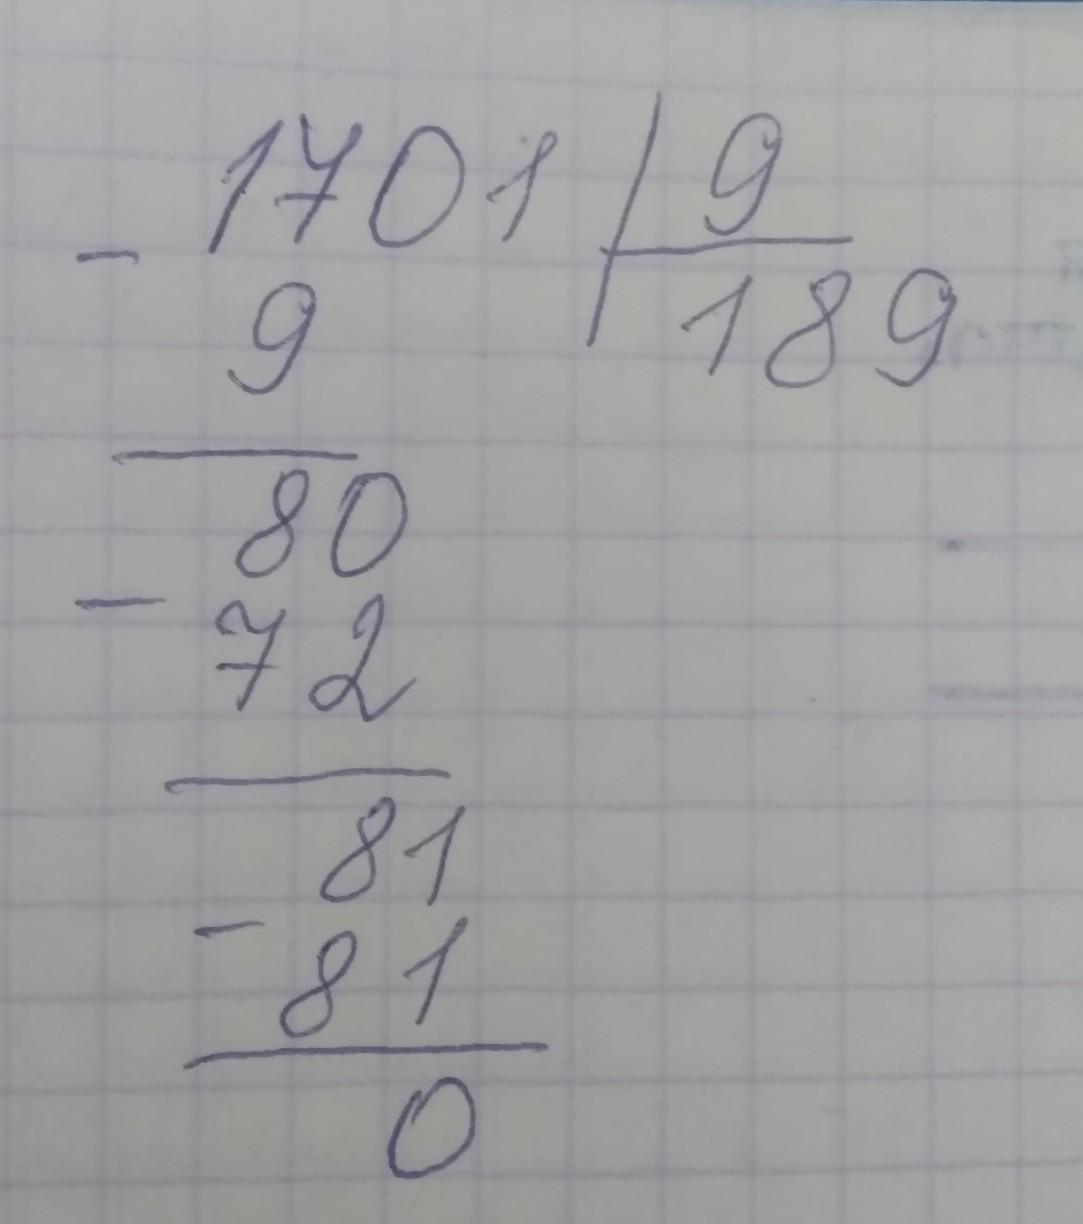 1701 | 9
- 9 189
80
- 72
81
- 81
0